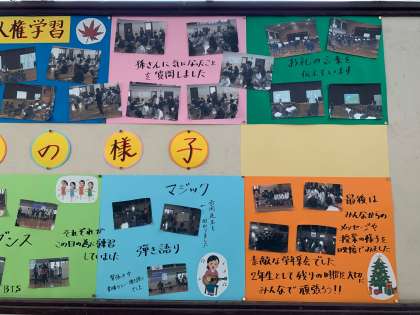 人権学習
孫さんに気になったこと
を質問しました
お礼の言葉を
伝えています
の様子
マジック
弾き語り
ダンス
それぞれが
この日の為に練習
していました
BTS
最後は
みんなからの
メッセージや
授業の様子を
映像でみました
素敵な学年集会でした
2年生として残りの時間を大切に
みんなで頑張ろう!!